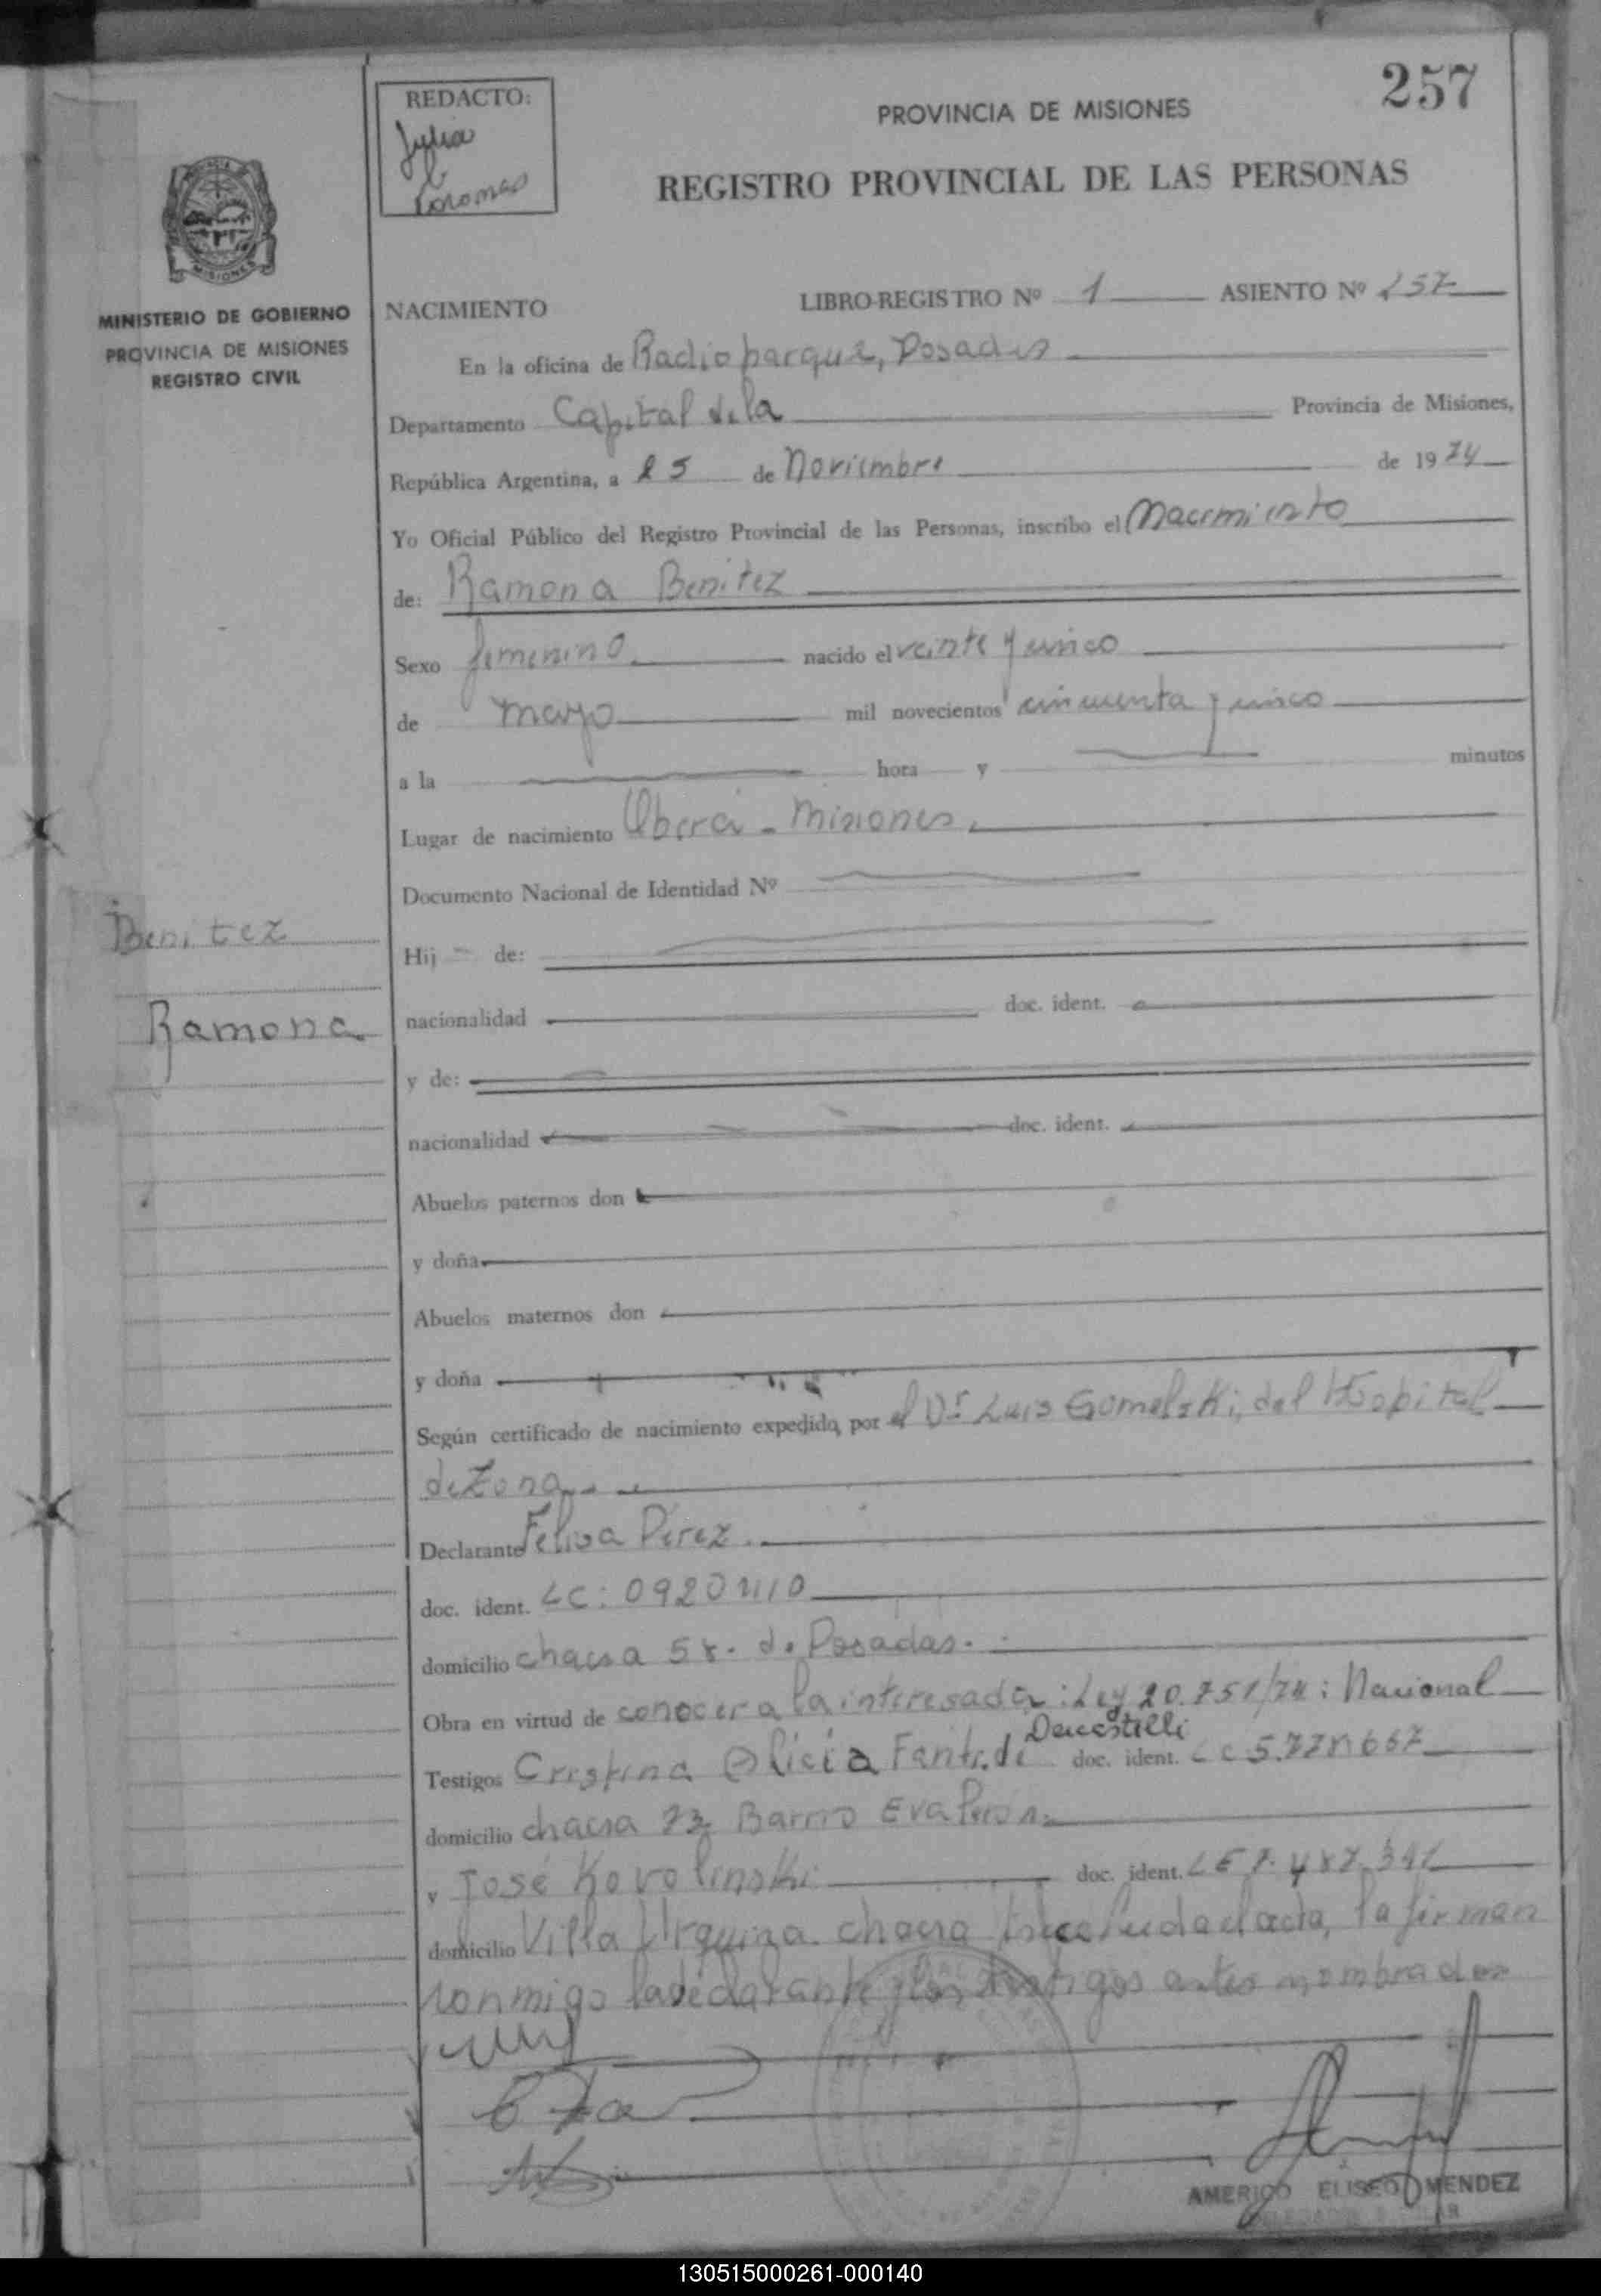 257
REDACTO:
Julia
PROVINCIA DE MISIONES
REGISTRO PROVINCIAL DE LAS PERSONAS
MISIONES
MINISTERIO DE GOBIERNO
PROVINCIA DE MISIONES
REGISTRO CIVIL
NACIMIENTO LIBRO-REGISTRO Nº 1 ASIENTO Nº 257
En la oficina de Radioparque, Posadas
Departamento Capital de la Provincia de Misiones,
República Argentina, a 25 de Noviembre de 1974
Yo Oficial Público del Registro Provincial de las Personas, inscribo el Nacimiento
de: Ramona Benitez
Sexo femenino nacido el veinte y cinco
de mayo mil novecientos cincuenta y cinco
a la hora y minutos
Lugar de nacimiento Oberá - Misiones.
Documento Nacional de Identidad Nº
Benitez
Hij de:
Ramona
nacionalidad doc. ident.
y de:
nacionalidad doc. ident.
Abuelos paternos don
y doña
Abuelos maternos don
y doña
Según certificado de nacimiento expedido, por el Dr Luis Gomelski, del Hospital
de Zona.
Declarante Felisa Perez.
doc. ident. LC: 0920
domicilio chacra 58. de Posadas.
Obra en virtud de conocer a la interesada: Ley 20.751/74: Nacional
Testigos Cristina Alicia de doc. ident. LC 5.
domicilio chacra 73 Barrio Eva Perón.
y José Kovolinski doc. ident. LE 7.487.341
domicilio Villa Urquiza chacra acta, la firman
conmigo la declarante y los testigos antes nombrados
AMERICO ELISEO MENDEZ
130515000261-000140